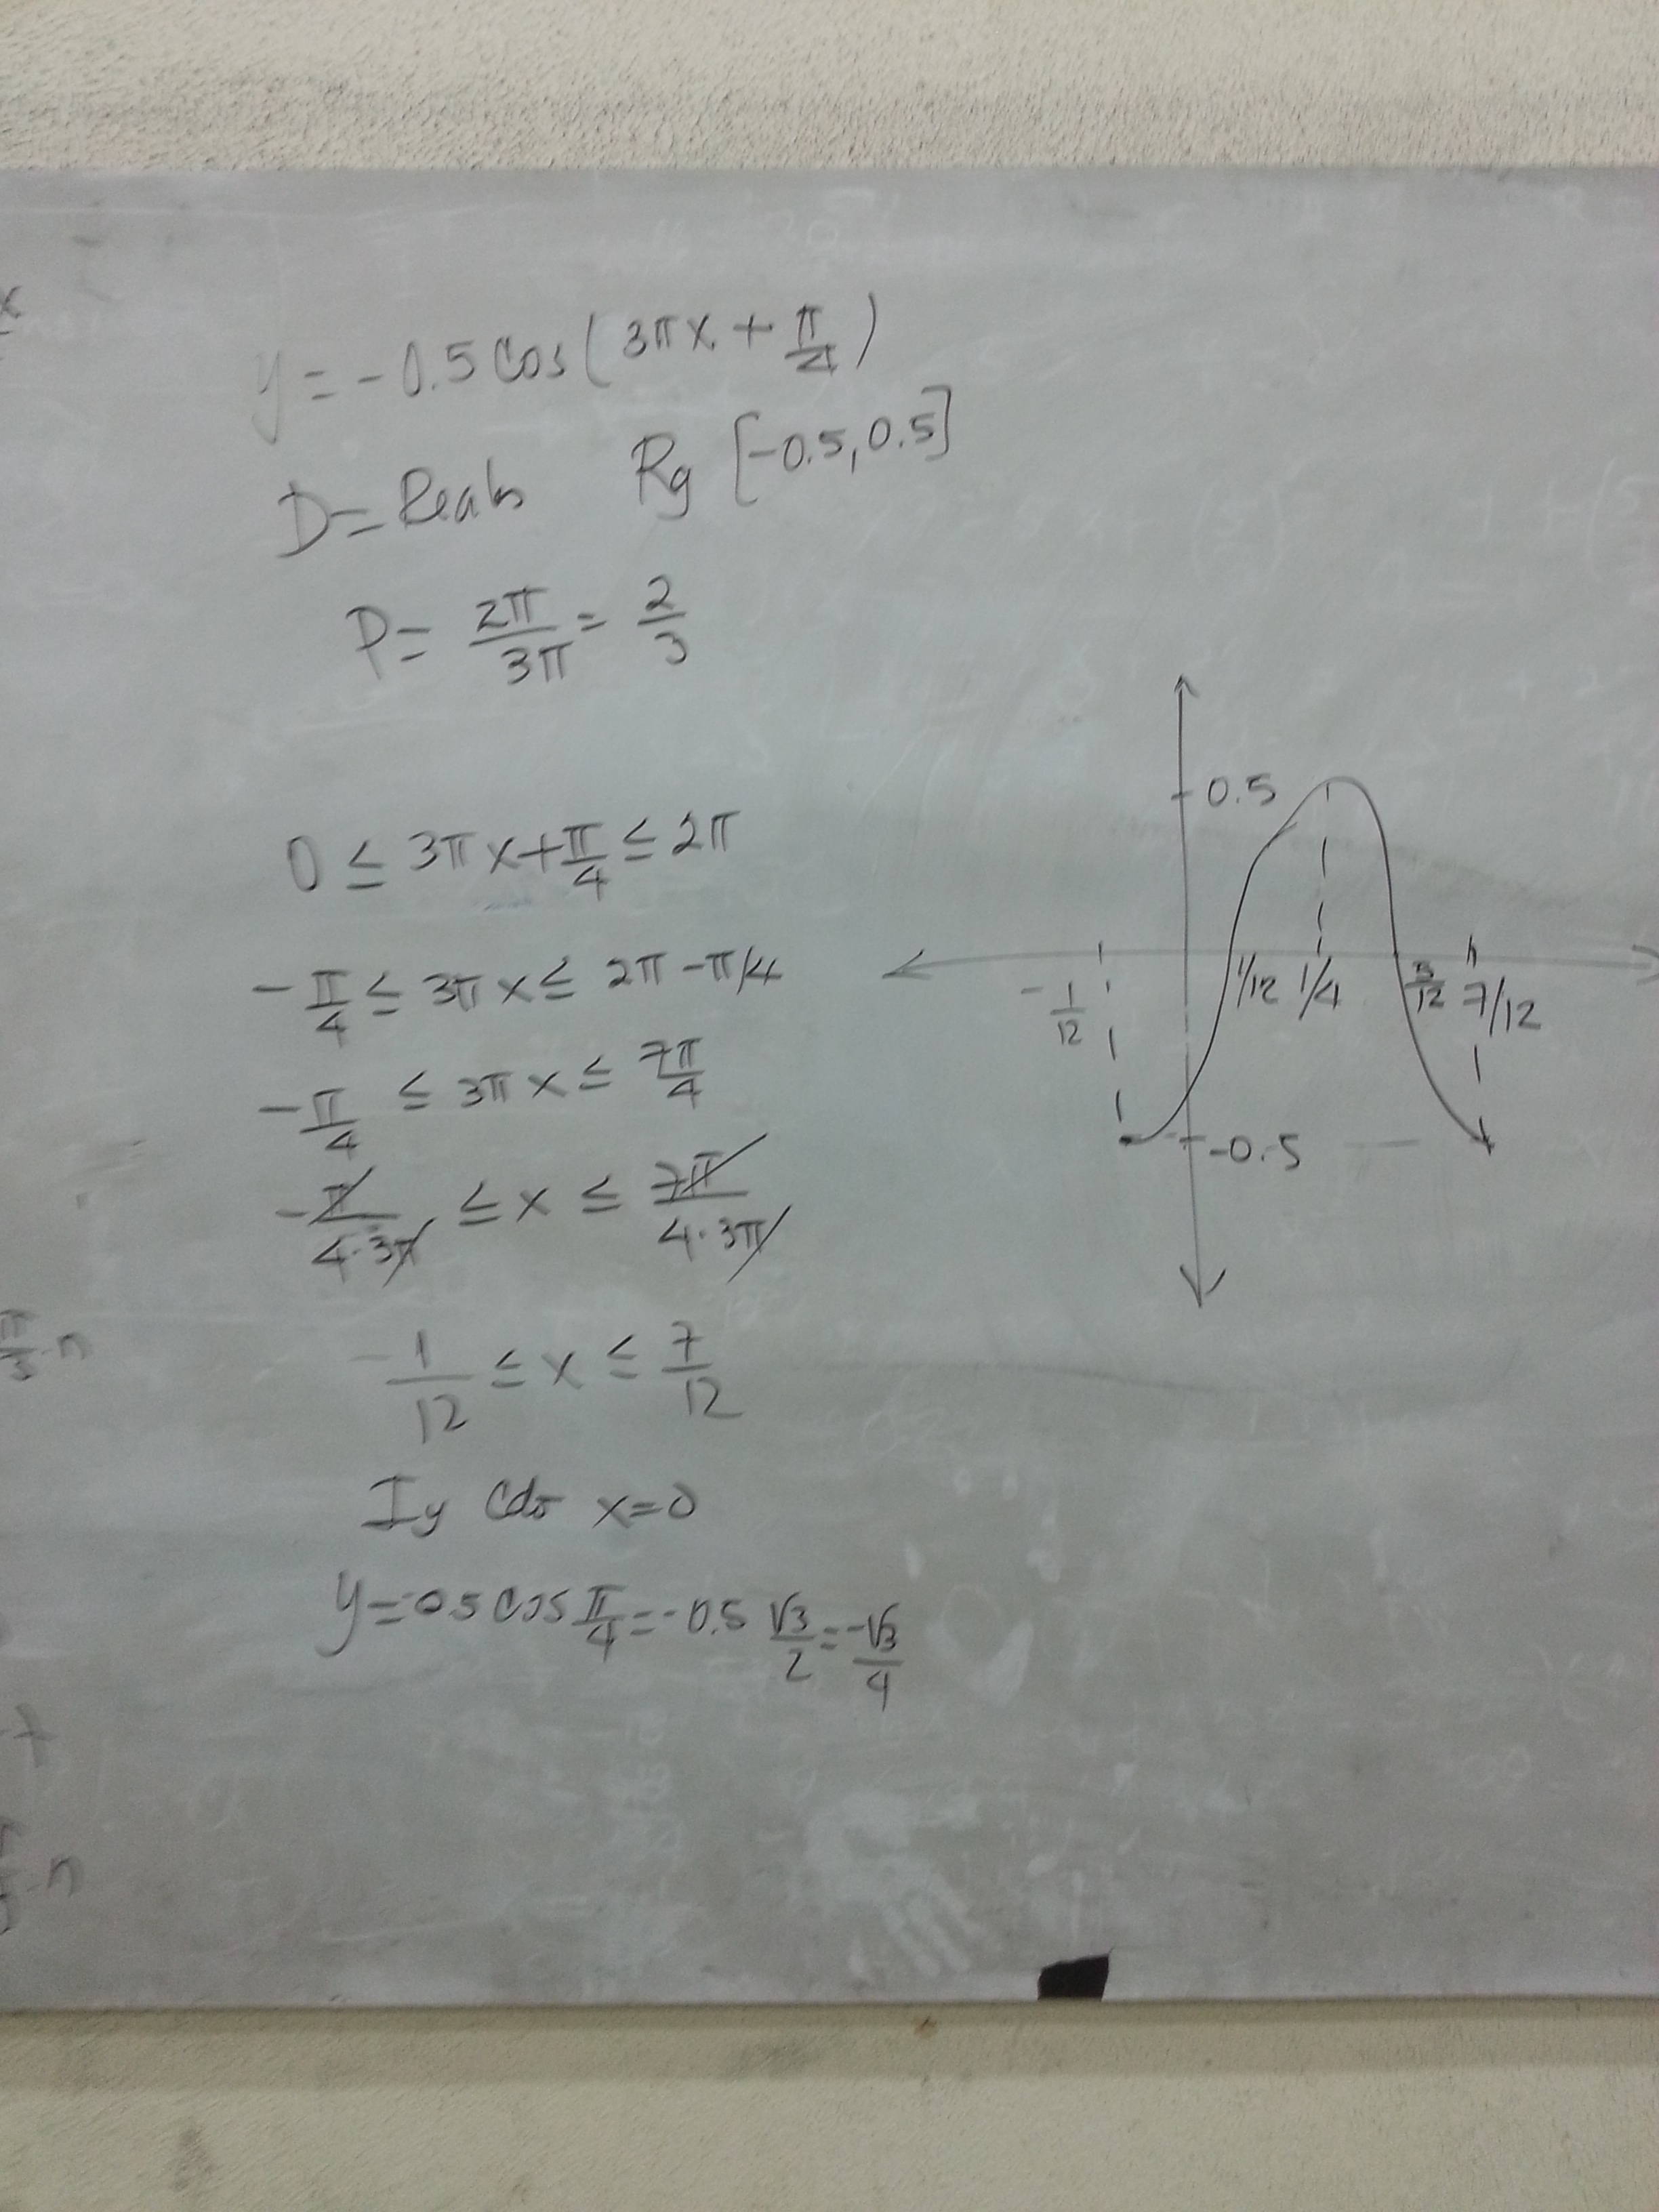 x
y = -0.5 Cos(3πx + π/4)
D = Reals Rg [-0.5, 0.5]
P = 2π/3π = 2/3
0 ≤ 3πx + π/4 ≤ 2π
-π/4 ≤ 3πx ≤ 2π - π/4
-π/4 ≤ 3πx ≤ 7π/4
-π/4·3π ≤ x ≤ 7π/4·3π
-1/12 ≤ x ≤ 7/12
Iy Cdo x=0
y = -0.5 Cos π/4 = -0.5 √3/2 = -√3/4
0.5
-1/12 1/12 1/4 5/12 7/12
-0.5
π/3·n